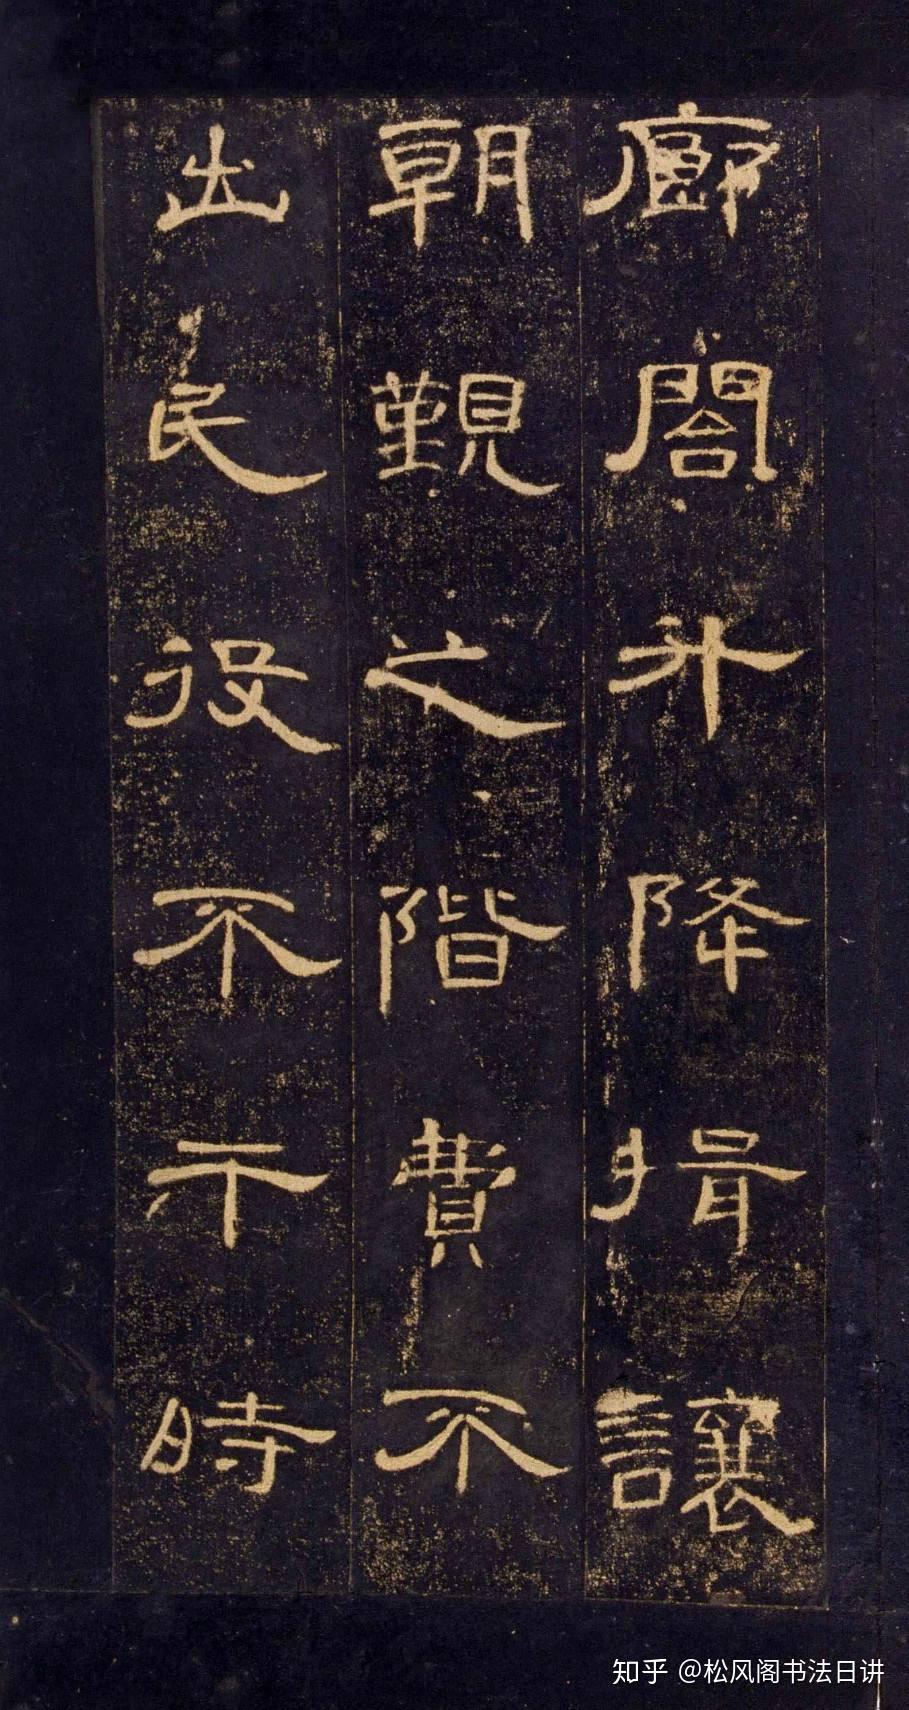 廊閣升降揖讓
朝覲之階費不
出民役不干時
知乎 @松风阁书法日讲